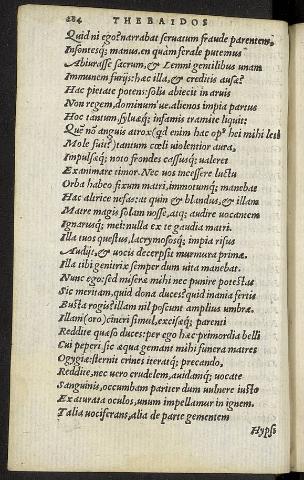 284 THEBAIDOS
Quid ni ego? narrabat seruatum fraude parentem,
Insontesq; manus. en quam ferale putemus
Abiurasse sacrum, & Lemni gentilibus unam
Immunem furijs: hæc illa, & creditis ausæ?
Hæc pietate potens: solis abiecit in aruis
Non regem, dominum'ue. alienos impia partus
Hoc tantum, syluæq; infamis tramite liquit:
Quē nō anguis atrox (qd enim hac op9 hei mihi leti
Mole fuit?) tantum cœli uiolentior aura,
Impulsæq; noto frondes cassusq; ualeret
Exanimare timor. Nec uos incessere luctu
Orba habeo fixum matri, immotumq; manebat
Hac altrice nefas: at quin & blandus, & illam
Matre magis solam nosse, atq; audire uocantem
Ignarusq; mei: nulla ex te gaudia matri.
Illa tuos questus, lacrymososq; impia risus
Audijt, & uocis decerpsit murmura primæ.
Illa tibi genitrix semper dum uita manebat.
Nunc ego: sed miseræ mihi nec punire potestas
Sic meritam, quid dona duces? quid inania fertis
Busta rogis? illam nil poscunt amplius umbræ.
Illam (oro) cineri simul, excisæq; parenti
Reddite quæso duces: per ego hæc primordia belli
Cui peperi. sic æqua gemant mihi funera matres
Ogygiæ: sternit crines iteratq; precando,
Reddite, nec uero crudelem, auidamq; uocate
Sanguinis, occumbam pariter dum uulnere iusto
Exaturata oculos, unum impellamur in ignem.
Talia uociferans, alia de parte gementem
Hyps